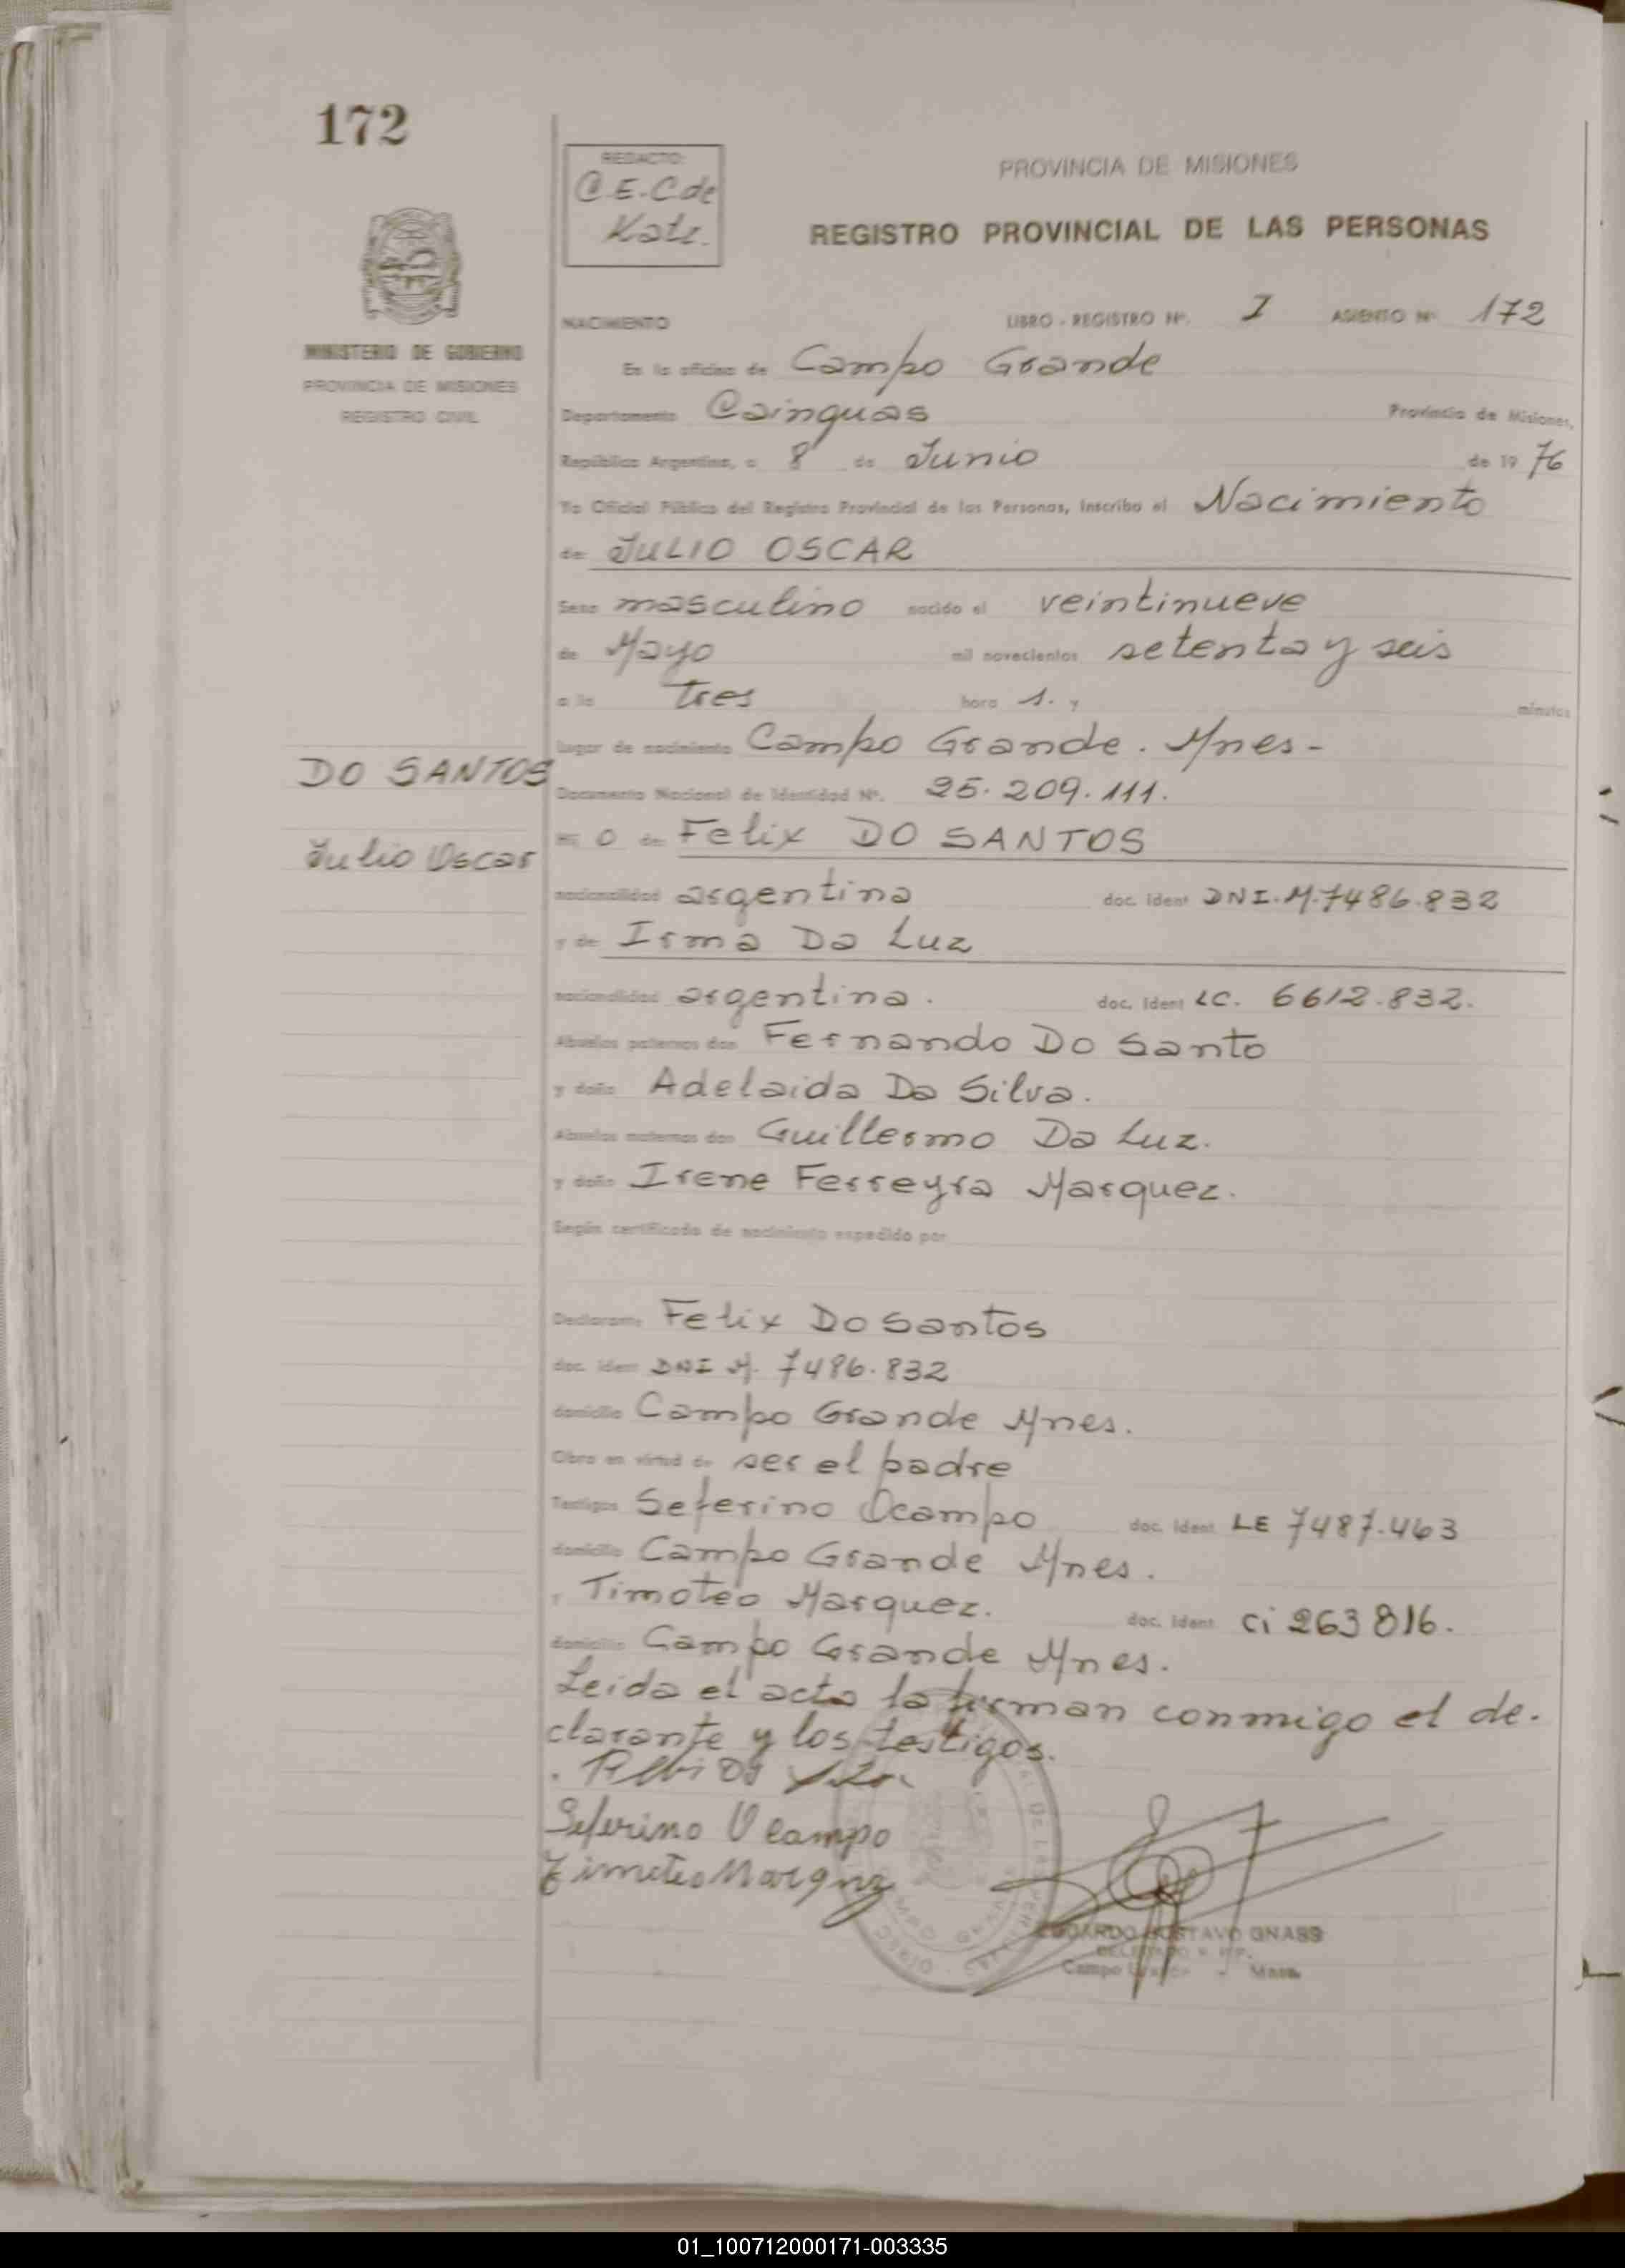 172
REDACTO:
C.E.C de
Katz.
PROVINCIA DE MISIONES
REGISTRO PROVINCIAL DE LAS PERSONAS
MINISTERIO DE GOBIERNO
PROVINCIA DE MISIONES
REGISTRO CIVIL
NACIMIENTO LIBRO - REGISTRO Nº. I ASIENTO Nº 172
En la oficina de Campo Grande
Departamento Cainguas Provincia de Misiones,
República Argentina, a 8 de Junio de 19 76
Yo Oficial Público del Registro Provincial de las Personas, inscribo el Nacimiento
de JULIO OSCAR
Sexo masculino nacido el veintinueve
de Mayo mil novecientos setenta y seis
a la tres hora s. y minutos
Lugar de nacimiento Campo Grande. Mnes-
DO SANTOS
Julio Oscar
Documento Nacional de Identidad Nº. 25.209.111.
Hij O de Felix DO SANTOS
nacionalidad argentina doc. ident DNI.M.7486.832
y de Irma Da Luz
nacionalidad argentina. doc. ident LC. 6612.832.
Abuelos paternos don Fernando Do Santo
y doña Adelaida Da Silva.
Abuelos maternos don Guillermo Da Luz.
y doña Irene Ferreyra Marquez.
Según certificado de nacimiento expedido por
Declarante Felix Do Santos
doc. ident DNI M. 7486.832
domicilio Campo Grande Mnes.
Obra en virtud de ser el padre
Testigos Seferino Ocampo doc. ident LE 7487.463
domicilio Campo Grande Mnes.
y Timoteo Marquez. doc. ident Ci 263816.
domicilio Campo Grande Mnes.
Leida el acta la firman conmigo el de-
clarante y los testigos.
Seferino Ocampo
Timoteo Marquz
GUSTAVO GNASS
DELEGADO R. P. P.
Campo Grande - Mnes.
01_100712000171-003335